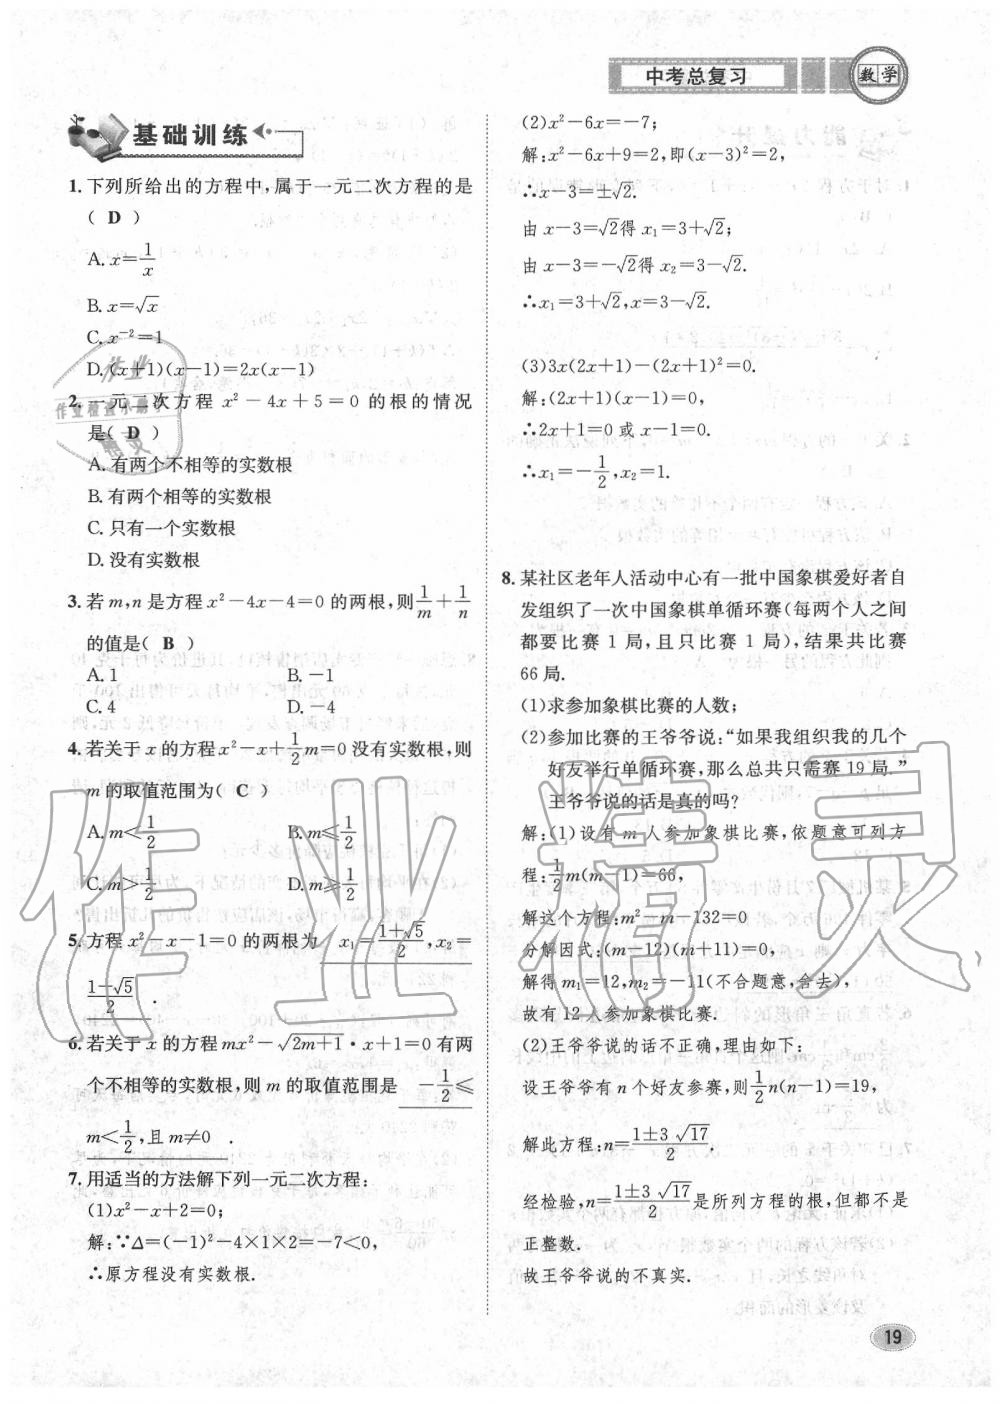 中考总复习
数学
基础训练
1.下列所给出的方程中,属于一元二次方程的是
( D )
A.x=1/x
B.x=√x
C.x⁻²=1
D.(x+1)(x-1)=2x(x-1)
2.一元二次方程 x²-4x+5=0 的根的情况
是( D )
A.有两个不相等的实数根
B.有两个相等的实数根
C.只有一个实数根
D.没有实数根
3.若 m,n 是方程 x²-4x-4=0 的两根,则 1/m+1/n
的值是( B )
A.1 B.-1
C.4 D.-4
4.若关于 x 的方程 x²-x+1/2m=0 没有实数根,则
m 的取值范围为( C )
A.m<1/2 B.m≤1/2
C.m>1/2 D.m≥1/2
5.方程 x²-x-1=0 的两根为 x₁=(1+√5)/2,x₂=
(1-√5)/2 .
6.若关于 x 的方程 mx²-√(2m+1)·x+1=0 有两
个不相等的实数根,则 m 的取值范围是 -1/2≤
m<1/2,且 m≠0 .
7.用适当的方法解下列一元二次方程:
(1)x²-x+2=0;
解:∵Δ=(-1)²-4×1×2=-7<0,
∴原方程没有实数根.
(2)x²-6x=-7;
解:x²-6x+9=2,即(x-3)²=2,
∴x-3=±√2.
由 x-3=√2得 x₁=3+√2;
由 x-3=-√2得 x₂=3-√2.
∴x₁=3+√2,x=3-√2.
(3)3x(2x+1)-(2x+1)²=0.
解:(2x+1)(x-1)=0,
∴2x+1=0 或 x-1=0.
∴x₁=-1/2,x₂=1.
8.某社区老年人活动中心有一批中国象棋爱好者自
发组织了一次中国象棋单循环赛(每两个人之间
都要比赛 1 局,且只比赛 1 局),结果共比赛
66 局.
(1)求参加象棋比赛的人数;
(2)参加比赛的王爷爷说:“如果我组织我的几个
好友举行单循环赛,那么总共只需赛 19 局.”
王爷爷说的话是真的吗?
解:(1)设有 m 人参加象棋比赛,依题意可列方
程:1/2m(m-1)=66,
解这个方程:m²-m-132=0
分解因式:(m-12)(m+11)=0,
解得 m₁=12,m₂=-11(不合题意,舍去),
故有 12 人参加象棋比赛.
(2)王爷爷说的话不正确,理由如下:
设王爷爷有 n 个好友参赛,则1/2n(n-1)=19,
解此方程:n=(1±3√17)/2.
经检验,n=(1±3√17)/2是所列方程的根,但都不是
正整数.
故王爷爷说的不真实.
19
作业精灵
作业
作业检查小助手
精灵